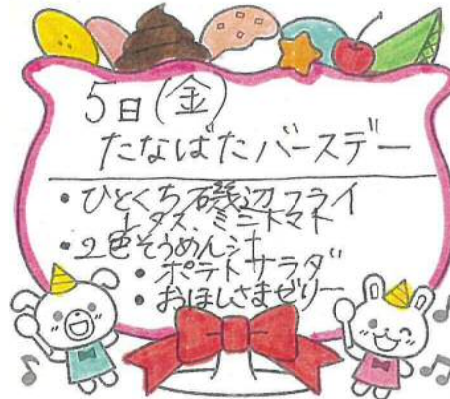 5日(金)
たなばたバースデー
・ひとくち磯辺フライ
レタス、ミニトマト
・2色そうめん汁
・ポテトサラダ
・おほしさまゼリー